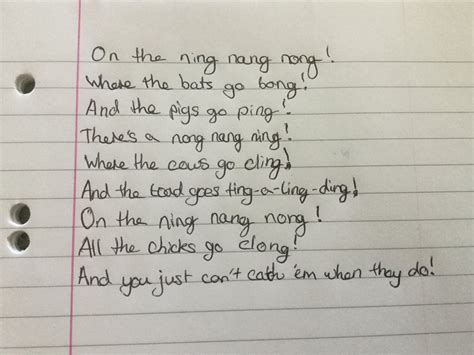 On the ning nang nong!
Where the bats go bong!
And the pigs go ping!
There's a nong nang ning!
Where the cows go cling!
And the toad goes ting-a-ling-ding!
On the ning nang nong!
All the chicks go clong!
And you just can't catch 'em when they do!